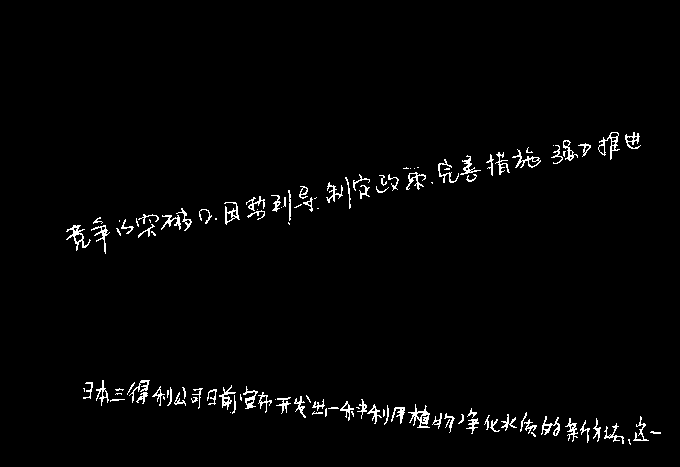 竞争的突破口.因势利导.制定政策.完善措施 强力推进
日本三得利公司日前宣布开发出一种利用植物净化水质的新方法,这一